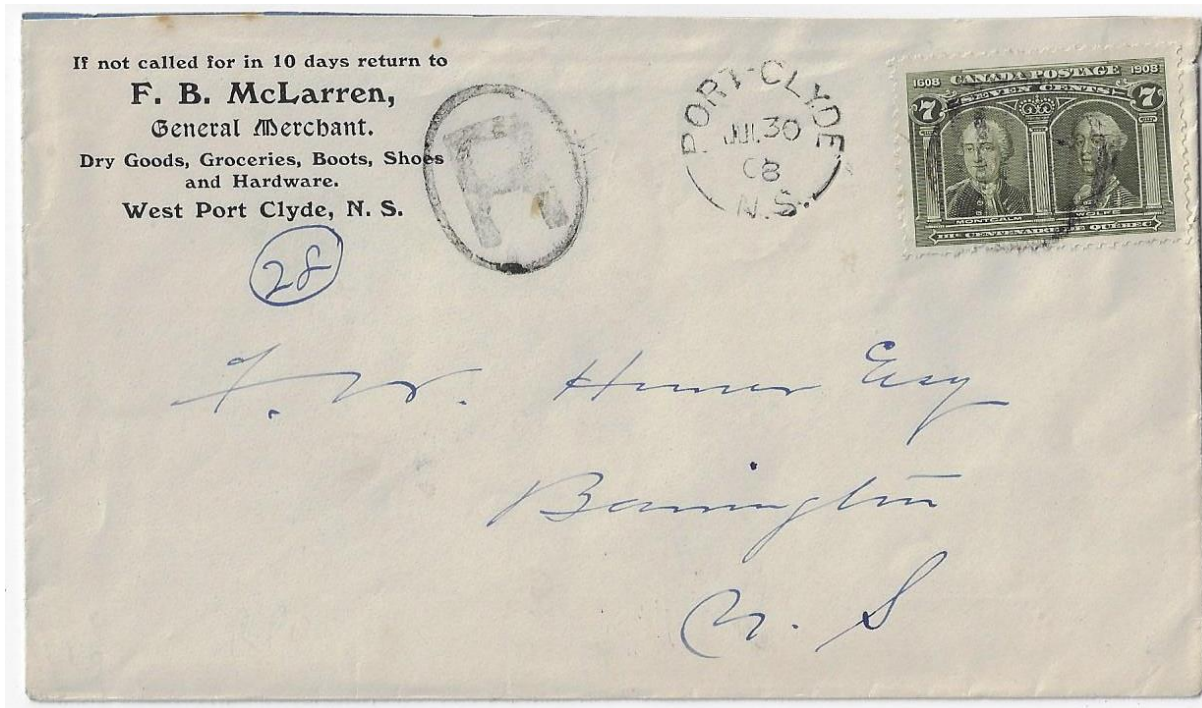 If not called for in 10 days return to
F. B. McLarren,
General Merchant.
Dry Goods, Groceries, Boots, Shoes
and Hardware.
West Port Clyde, N. S.
28
R
PORT CLYDE
JUL 30
08
N.S.
1608 CANADA POSTAGE 1908
7 SEVEN CENTS 7
MONTCALM WOLFE
IIIe CENTENAIRE DE QUÉBEC
F. W. Homer Esq
Barrington
N. S